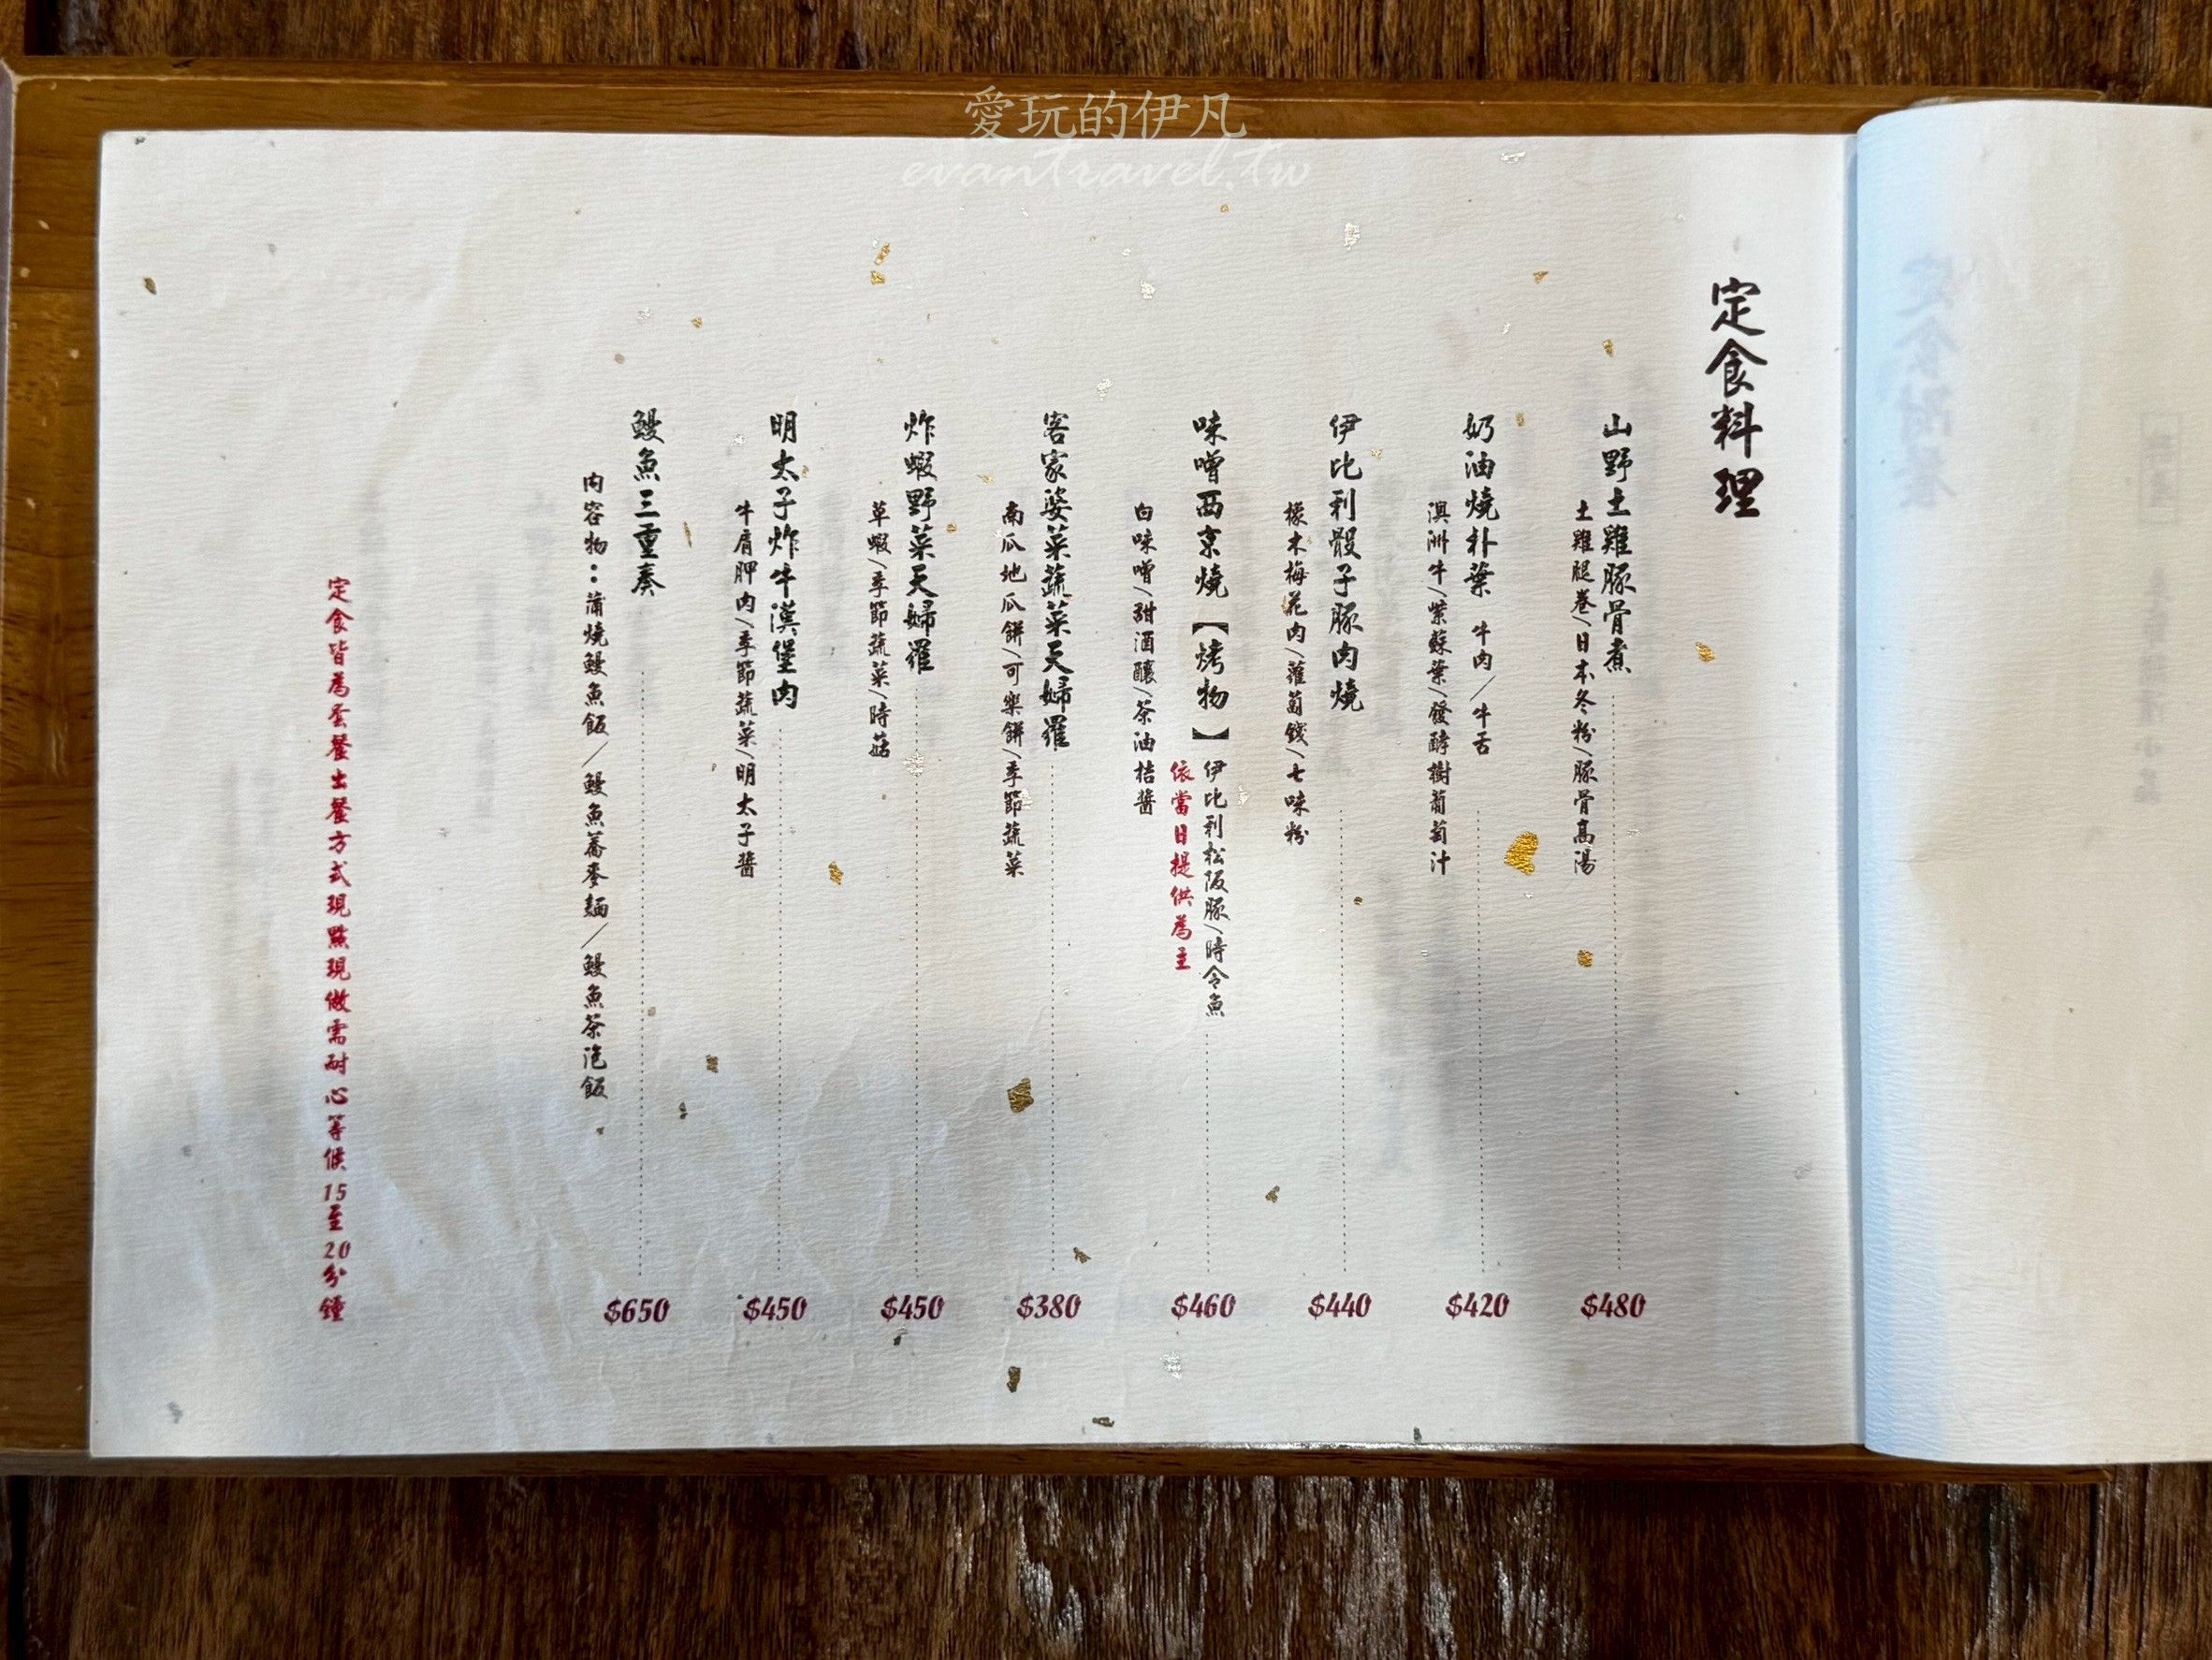 愛玩的伊凡
evantravel.tw
定食料理
山野土雞豚骨煮 $480
土雞腿卷/日本冬粉/豚骨高湯
奶油燒朴葉 牛肉/牛舌 $420
澳洲牛/紫蘇葉/發酵樹葡萄汁
伊比利骰子豚肉燒 $440
橡木梅花肉/蘿蔔錢/七味粉
味噌西京燒【烤物】伊比利松阪豚/時令魚 $460
依當日提供為主
白味噌/甜酒釀/茶油桔醬
客家婆菜蔬菜天婦羅 $380
南瓜地瓜餅/可樂餅/季節蔬菜
炸蝦野菜天婦羅 $450
草蝦/季節蔬菜/時菇
明太子炸牛漢堡肉 $450
牛肩胛肉/季節蔬菜/明太子醬
鰻魚三重奏 $650
內容物:蒲燒鰻魚飯/鰻魚蕎麥麵/鰻魚茶泡飯
定食皆為套餐出餐方式現點現做需耐心等候15至20分鐘